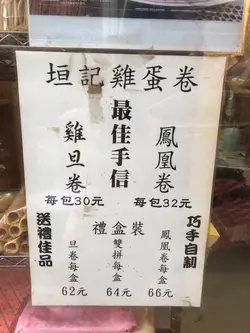 垣記雞蛋卷
最佳手信
雞旦卷
每包30元
鳳凰卷
每包32元
送禮佳品
禮盒裝
旦卷每盒
62元
雙拼每盒
64元
鳳凰卷每盒
66元
巧手自制